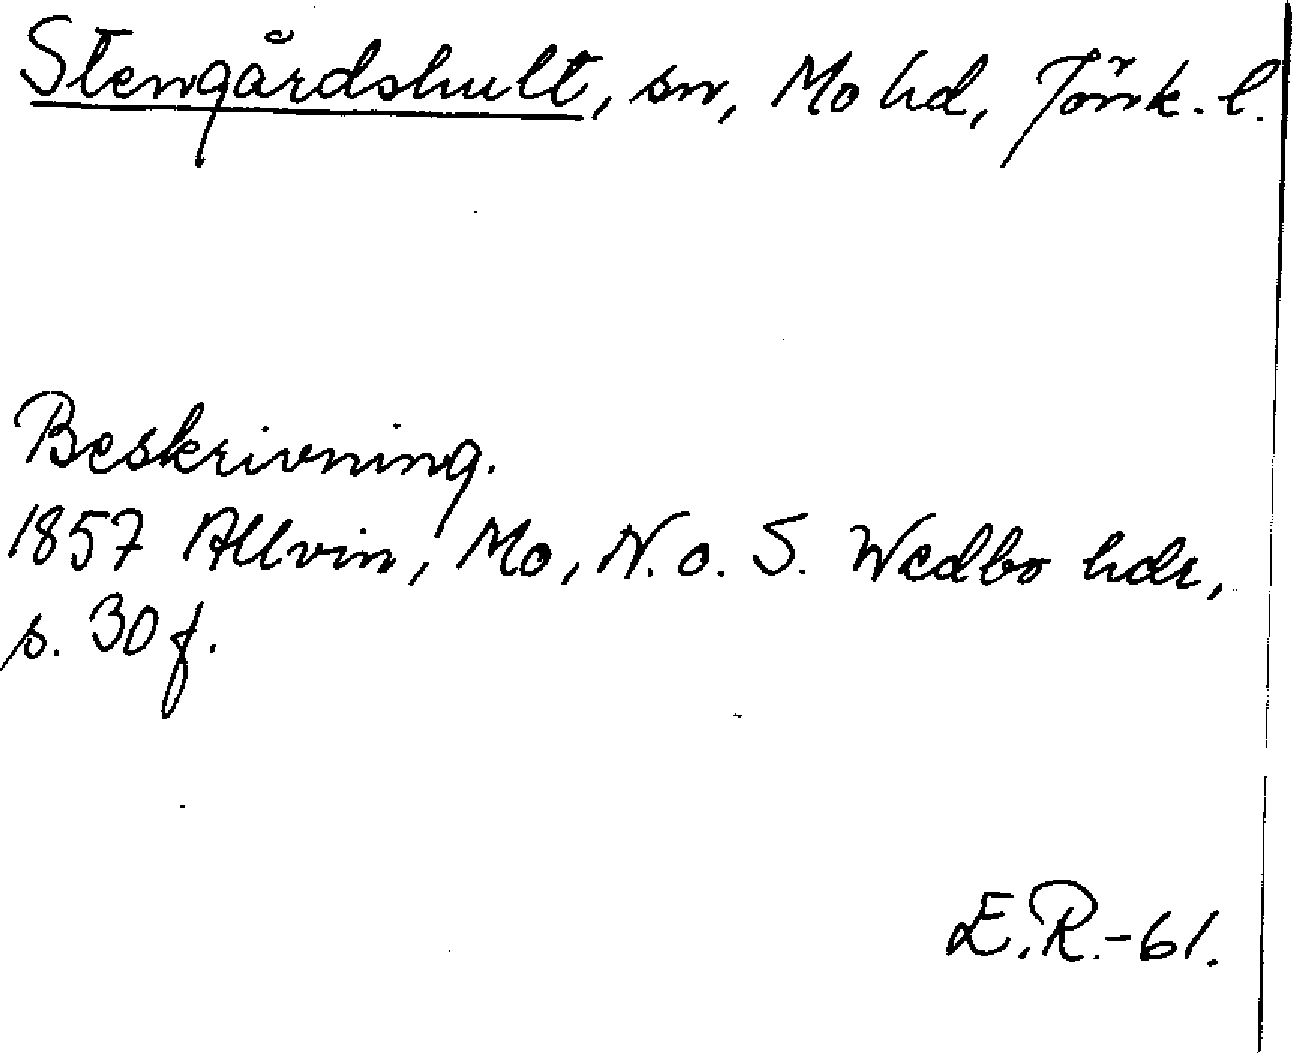 Stengårdshult, sn, Mo hd, Jönk. l.
Beskrivning.
1857 Allvin, Mo, N. o. S. Wedbo hdr,
s. 30 f.
E.R.-61.